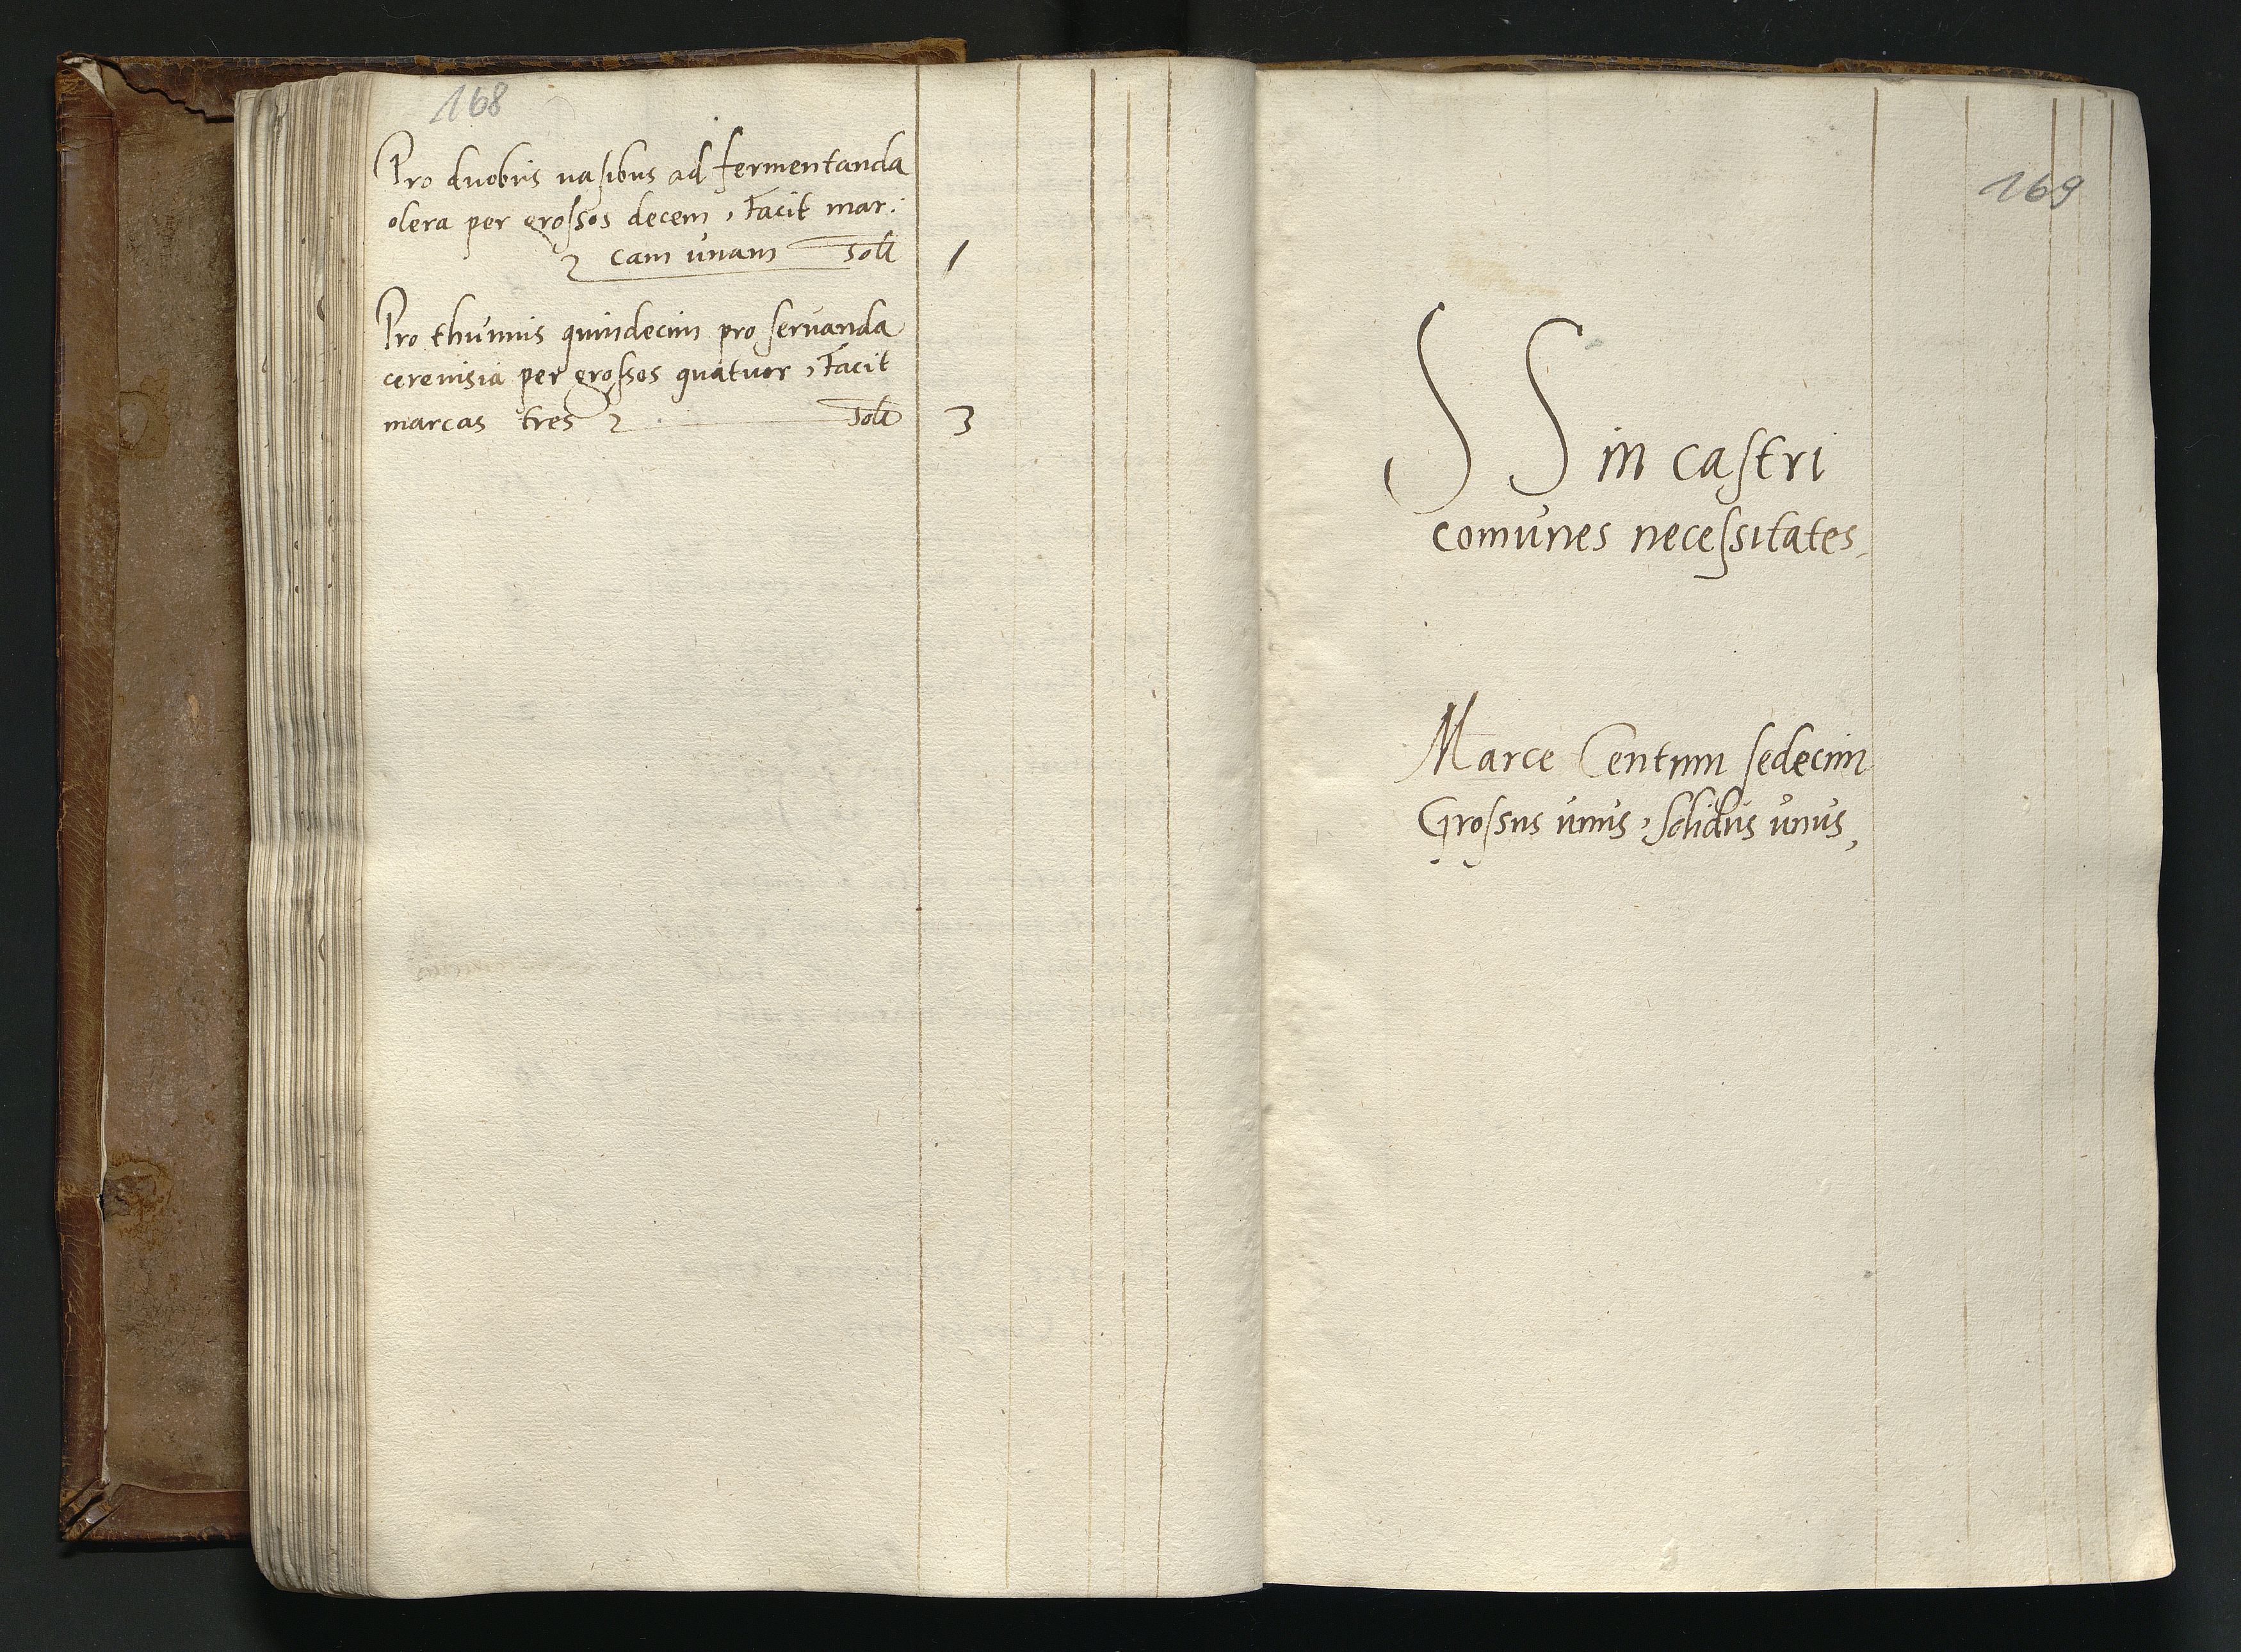 168
Pro duobus uasibus ad fermentanda
olera per grossos decem, Facit mar:
cam unam
1
Pro thunnis quindecim pro seruanda
cereuisia per grossos quatuor, Facit
marcas tres
3
169
SS in castri
comunes necessitates,
Marce Centum sedecim
Grossus unus, solidus unus,